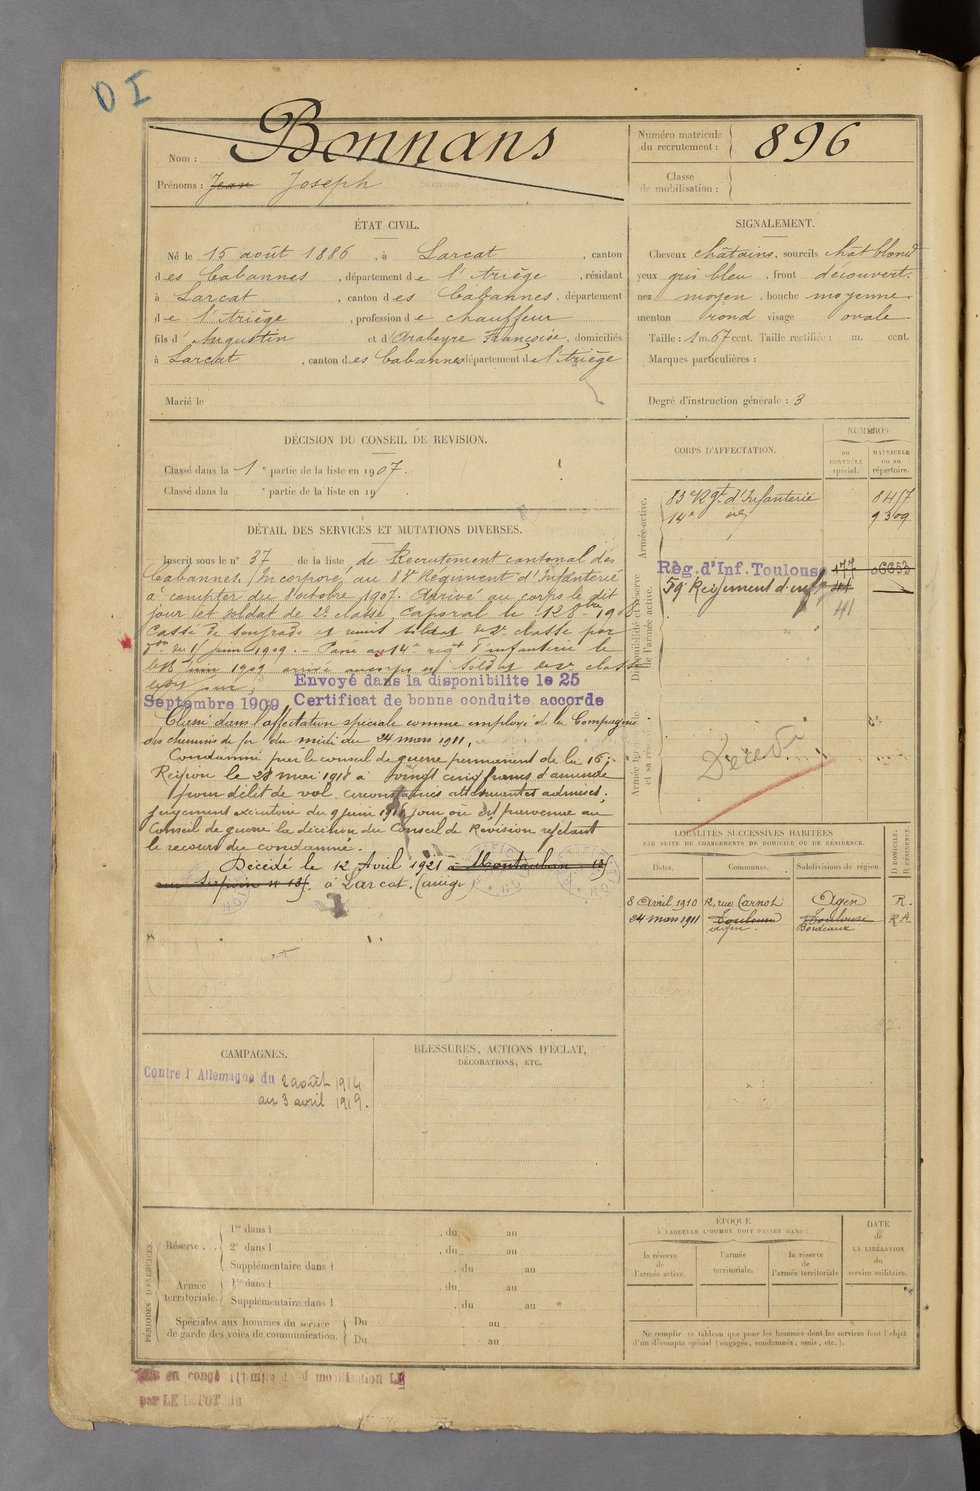 D I
Nom : Bonnans
Prénoms : Jean Joseph
Numéro matricule du recrutement : 896
Classe de mobilisation :
ÉTAT CIVIL.
Né le 15 août 1886, à Larcat, canton
des Cabannes, département de l'Ariège, résidant
à Larcat, canton des Cabannes, département
de l'Ariège, profession de chauffeur
fils d'Augustin et d'Arabeyre Françoise, domiciliés
à Larcat, canton des Cabannes département de l'Ariège
Marié le
SIGNALEMENT.
Cheveux châtains, sourcils chât blond
yeux gris bleu, front découvert.
nez moyen, bouche moyenne
menton rond visage ovale
Taille : 1 m. 67 cent. Taille rectifiée : m. cent.
Marques particulières :
Degré d'instruction générale : 3
DÉCISION DU CONSEIL DE REVISION.
Classé dans la 1e partie de la liste en 1907.
Classé dans la e partie de la liste en 19
CORPS D'AFFECTATION.
NUMÉROS
au CONTRÔLE spécial.
MATRICULE ou au répertoire.
Armée active.
83e Rgt. d'Infanterie
14e id 9309
Disponibilité et réserve de l'armée active.
Règ. d'Inf. Toulouse 177 06653
59e Regiment d'inf
41
Armée territoriale et sa réserve
Décédé
DÉTAIL DES SERVICES ET MUTATIONS DIVERSES.
Inscrit sous le n° 37 de la liste de Recrutement cantonal des
Cabannes. Incorporé au Régiment d'Infanterie
à compter du 8 octobre 1907. Arrivé au corps le dit
jour et soldat de 2e classe, Caporal le 12 8bre 1908
Cassé de son grade et remis soldat de 2e classe par
du 11 juin 1909. - Passé au 14e régt d'infanterie le
juin 1909 arrivé au corps et soldat de 2e classe
Envoyé dans la disponibilite le 25
Septembre 1909 Certificat de bonne conduite accorde
Classé dans l'affectation spéciale comme employé de la Compagnie
des chemins de fer du midi du 24 mars 1911.
Condamné par le conseil de guerre permanent de la 16e
Région le 28 mai 1918 à vingt cinq francs d'amende
pour délit de vol, circonstances atténuantes admises;
jugement exécutoire du 9 juin 1918 jour où est parvenue au
Conseil de guerre la décision du Conseil de Revision rejetant
le recours du condamné.
Décédé le 12 Avril 1921 à Montauban
à Larcat. (Ariège)
LOCALITÉS SUCCESSIVES HABITÉES
PAR SUITE DE CHANGEMENTS DE DOMICILE OU DE RÉSIDENCE.
Dates. Communes. Subdivisions de région. D DOMICILE. R RÉSIDENCE.
8 Avril 1910 12, rue Carnot Agen R.
24 mars 1911 Toulouse Toulouse R A
Agen. Bordeaux
CAMPAGNES.
Contre l'Allemagne du 2 août 1914
au 3 avril 1919.
BLESSURES, ACTIONS D'ÉCLAT,
DÉCORATIONS, ETC.
PÉRIODES D'EXERCICES.
Réserve . . .
1re dans l du au
2e dans l du au
Supplémentaire dans l du au
Armée territoriale.
1re dans l du au
Supplémentaire dans l du au
Spéciales aux hommes du service
de garde des voies de communication.
Du au
Du au
ÉPOQUE
À LAQUELLE L'HOMME DOIT PASSER DANS :
la réserve de l'armée active.
l'armée territoriale.
la réserve de l'armée territoriale
DATE de LA LIBÉRATION du service militaire.
Ne remplir ce tableau que pour les hommes dont les services font l'objet
d'un décompte spécial (engagés, condamnés, omis, etc.).
en congé
par LE DEPOT du